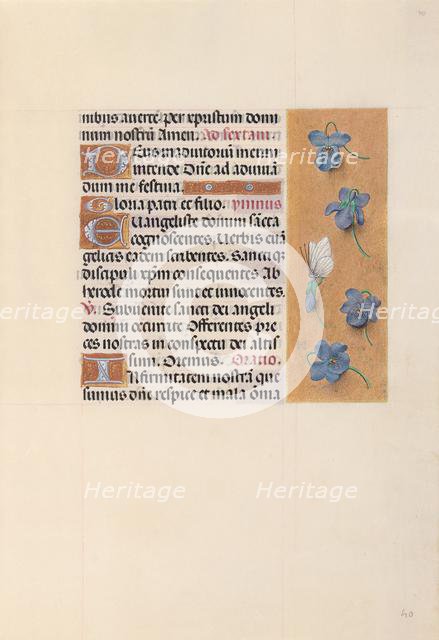 nibus averte. Per xpristum domi
num nostrum Amen. Ad sextam.
Deus in adiutorium meum
intende Dne ad adiuva
dum me festina.
Gloria patri et filio. ymnus
Evangeliste domini sacra
cognoscentes. Verbis evan
gelicis eadem scribentes. Sancti
discipuli xpm consequentes. Ab
herode mortui sunt et innocentes.
V. Subvenite sancti dei angeli
domini occurrite Offerentes pre
ces nostras in conspectu dei altis
simi. Oremus. Oratio.
Infirmitatem nostram que
sumus dne respice et mala omia
40
Heritage
Heritage
Heritage
Heritage
Heritage
Heritage